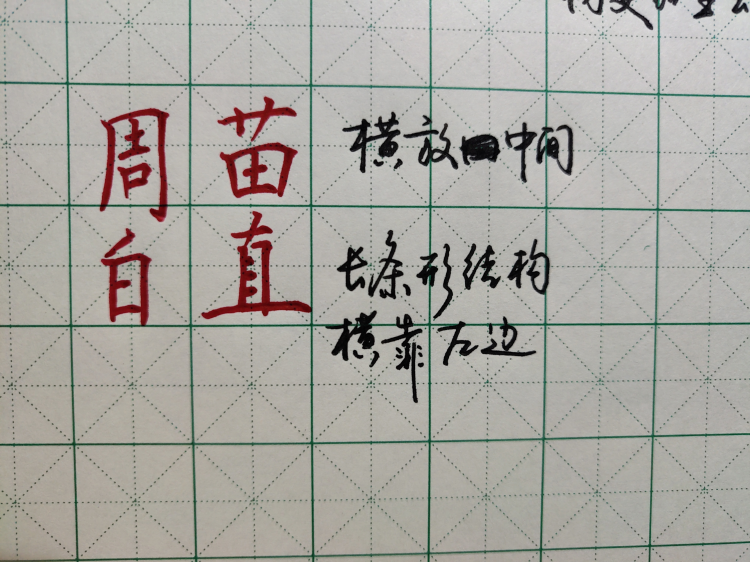 周 苗 横放中间
白 直 长条形结构
横靠左边